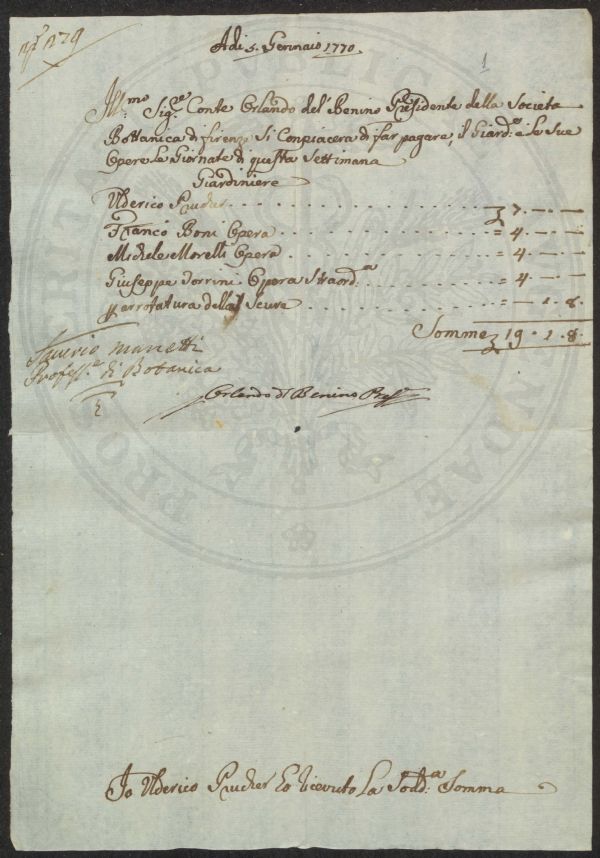 N.º 129
1
Adi 5. Gennaio 1770.
Ill.mo Sig.e Conte Orlando del Benino Presidente della Societa
Bottanica di firenze Si Conpiacera di far pagare, il Giard.e e le Sue
Opere le Giornate di questa Settimana
Giardiniere
Ulderico Prucher . . . . . . . . . . 7. — . —
Franco Boni Opera . . . . . . . . . = 4. — . —
Michele Morelli Opera . . . . . . . . = 4. — . —
Giuseppe Dorrini Opera Straord.a . . . . . . = 4. — . —
p arrotatura della Scure . . . . . . . = — . 1. 8.
Somma 19 . 1 . 8.
Saverio Manetti
Profess.e di Botanica
Orlando Dl Benino Pres.e
Io Ulderico Prucher Eo ricevuto La Sodd.a Somma